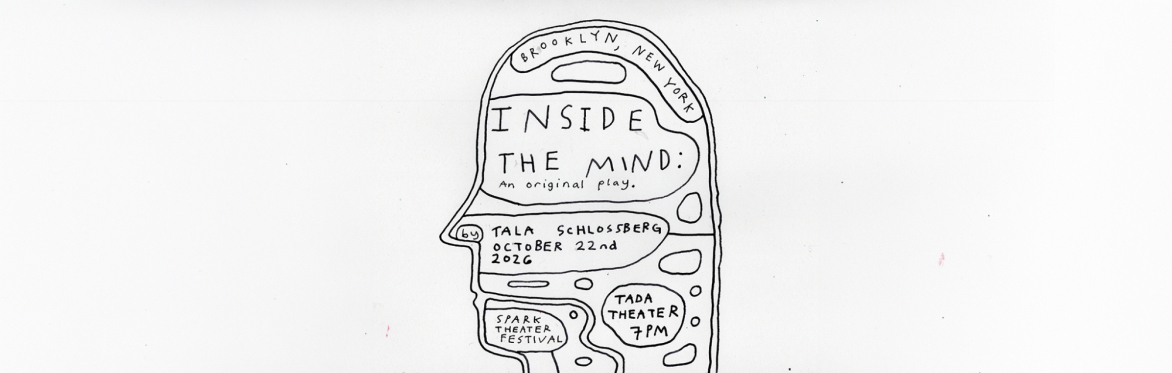 BROOKLYN, NEW YORK
INSIDE
THE MIND:
An original play.
by
TALA SCHLOSSBERG
OCTOBER 22nd
2026
TADA
THEATER
7PM
SPARK
THEATER
FESTIVAL